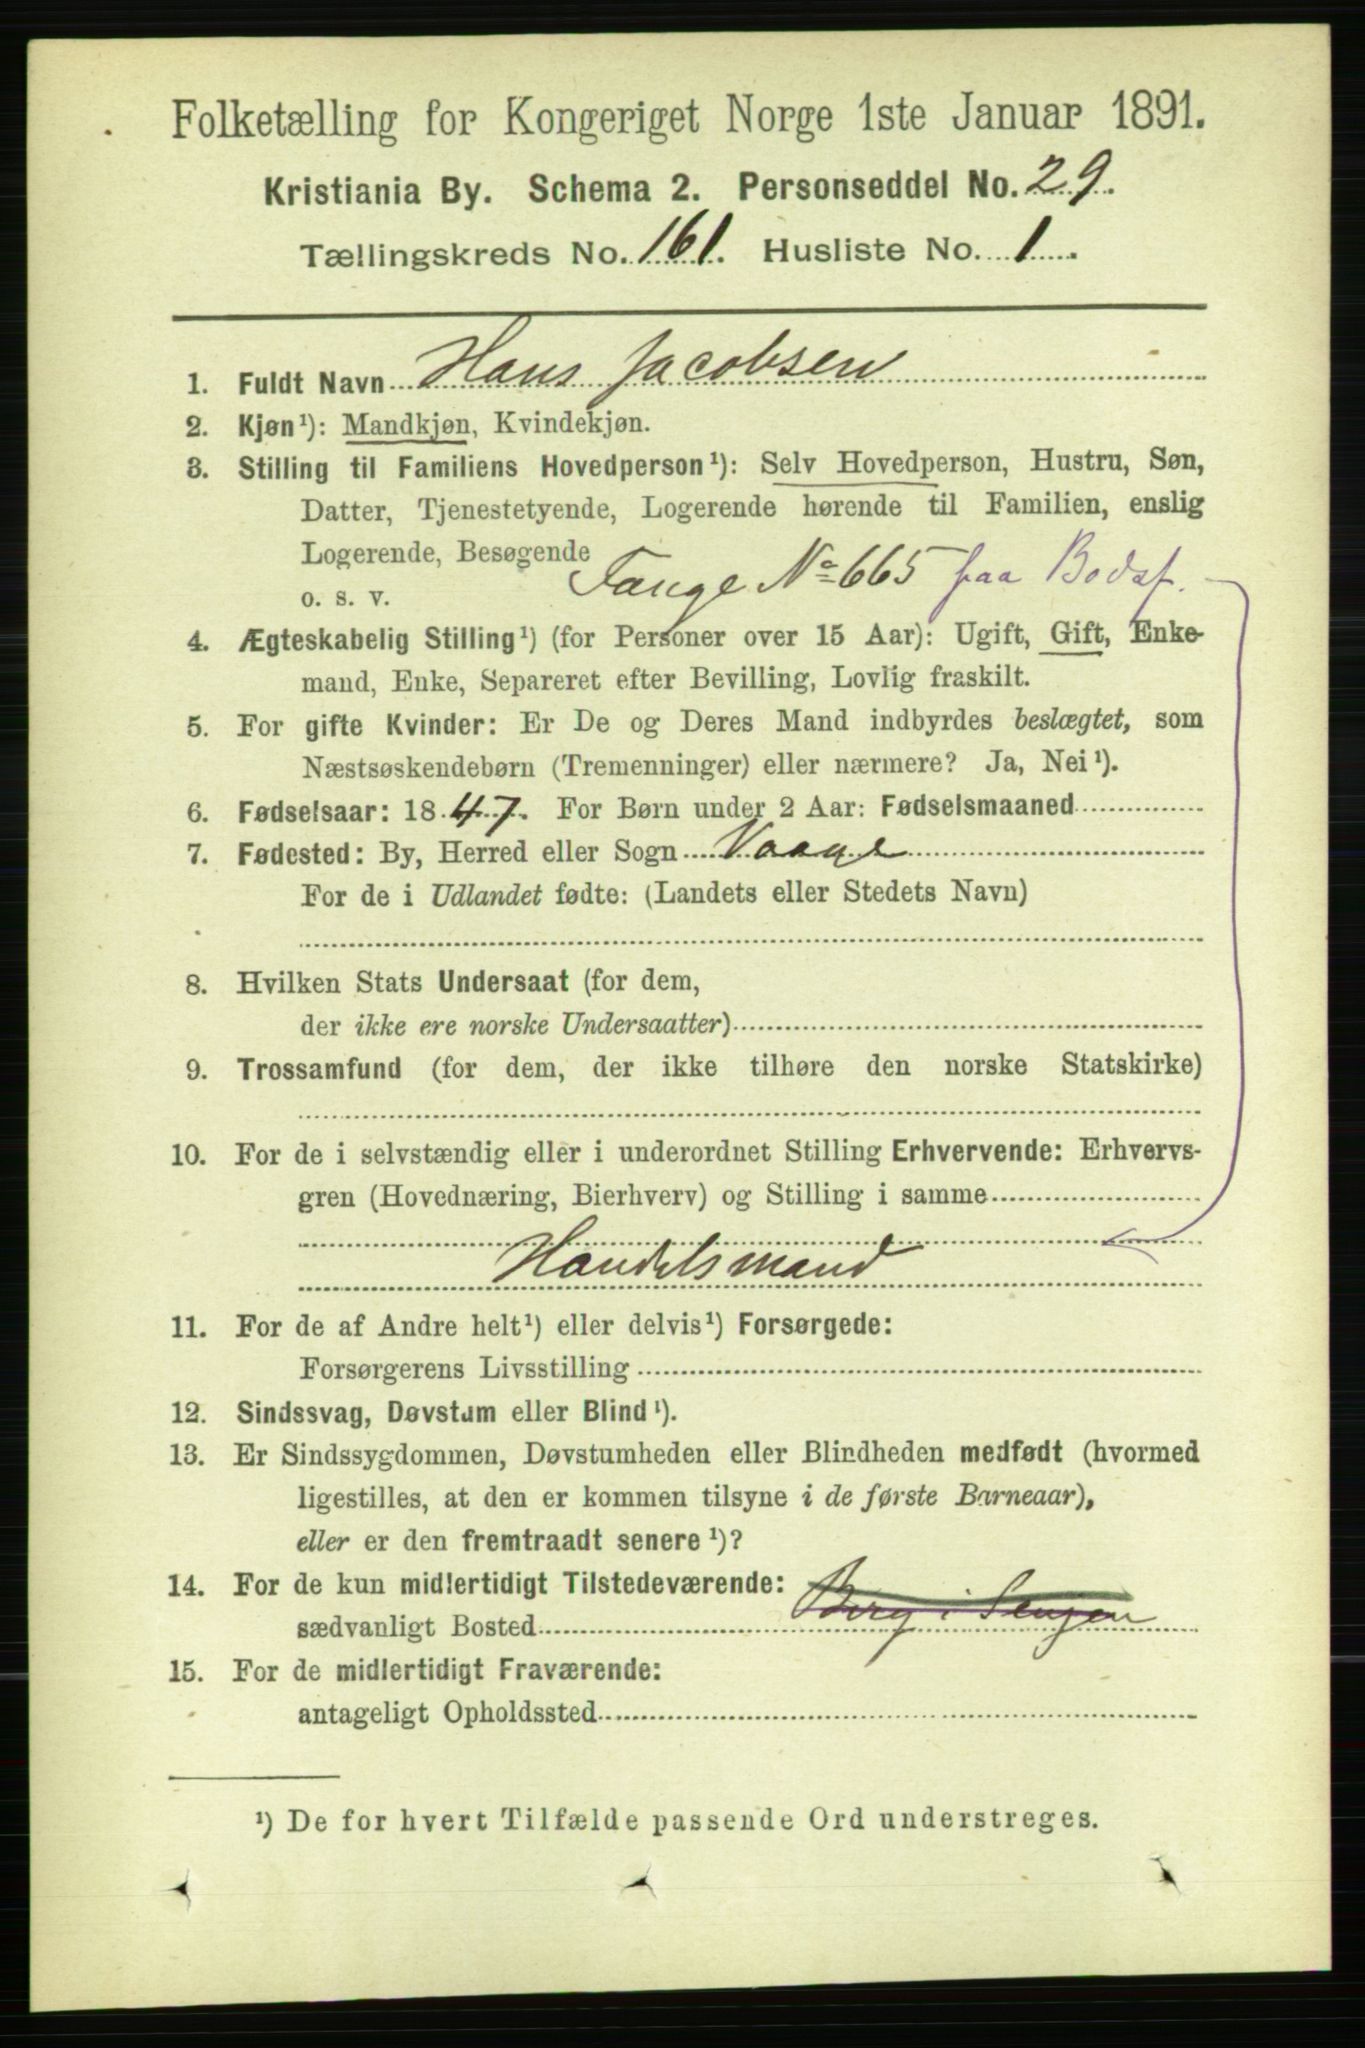 Folketælling for Kongeriget Norge 1ste Januar 1891.
Kristiania By. Schema 2. Personseddel No. 29.
Tællingskreds No. 161. Husliste No. 1.
1. Fuldt Navn Hans Jacobsen
2. Kjøn¹): Mandkjøn, Kvindekjøn.
3. Stilling til Familiens Hovedperson¹): Selv Hovedperson, Hustru, Søn,
Datter, Tjenestetyende, Logerende hørende til Familien, enslig
Logerende, Besøgende
o. s. v. Fange No 665 paa Bodsf.
4. Ægteskabelig Stilling¹) (for Personer over 15 Aar): Ugift, Gift, Enke-
mand, Enke, Separeret efter Bevilling, Lovlig fraskilt.
5. For gifte Kvinder: Er De og Deres Mand indbyrdes beslægtet, som
Næstsøskendebørn (Tremenninger) eller nærmere? Ja, Nei¹).
6. Fødselsaar: 1847. For Børn under 2 Aar: Fødselsmaaned
7. Fødested: By, Herred eller Sogn Vaage
For de i Udlandet fødte: (Landets eller Stedets Navn)
8. Hvilken Stats Undersaat (for dem,
der ikke ere norske Undersaatter)
9. Trossamfund (for dem, der ikke tilhøre den norske Statskirke)
10. For de i selvstændig eller i underordnet Stilling Erhvervende: Erhvervs-
gren (Hovednæring, Bierhverv) og Stilling i samme
Handelsmand
11. For de af Andre helt¹) eller delvis¹) Forsørgede:
Forsørgerens Livsstilling
12. Sindssvag, Døvstum eller Blind¹).
13. Er Sindssygdommen, Døvstumheden eller Blindheden medfødt (hvormed
ligestilles, at den er kommen tilsyne i de første Barneaar),
eller er den fremtraadt senere¹)?
14. For de kun midlertidigt Tilstedeværende:
sædvanligt Bosted Berg i Senjen
15. For de midlertidigt Fraværende:
antageligt Opholdssted
¹) De for hvert Tilfælde passende Ord understreges.